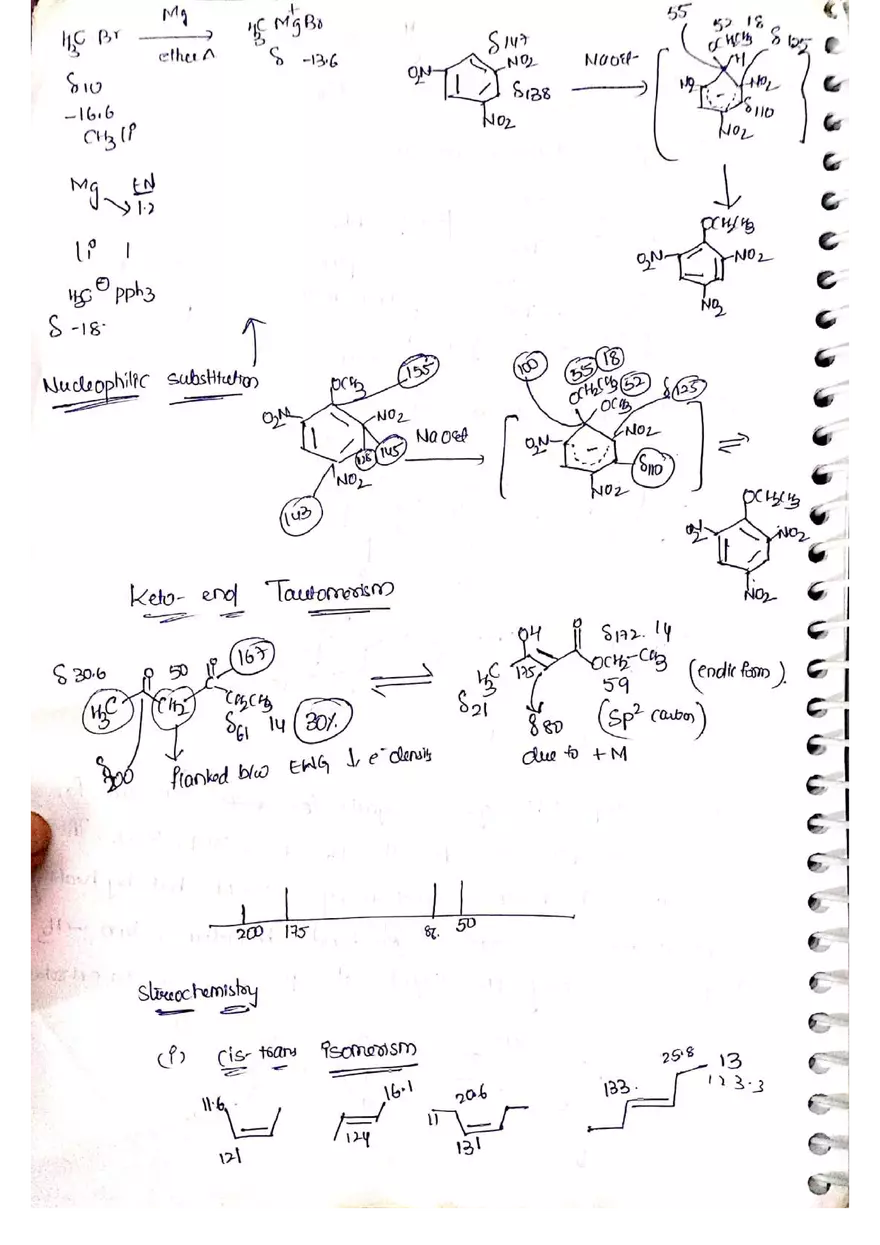 H3C Br Mg ether Δ H3C MgBr +
δ10 δ -13.6
-16.6
CH3 li
Mg EN
1.2
li 1
H3C ⊖ PPh3
δ -18.
δ147
O2N NO2
δ138
NO2
NaOEt
55 52 18
OCH2CH3 δ 125
H
NO2 NO2
δ110
NO2
OCH2CH3
O2N NO2
NO2
Nucleophilic substitution
OCH3 155
O2N NO2
128 145
NO2
143
NaOEt
100 55 18
OCH2CH3 52 δ 125
OCH3
O2N NO2
δ110
NO2
⇌
OCH2CH3
O2N NO2
NO2
Keto- enol Tautomerism
δ 30.6 O 50 O 167
H3C CH2 CH2CH3
δ61 14 30%
δ200
flanked b/w EWG ↓ e⁻ density
⇌
OH O δ172. 14
H3C 175 OCH2-CH3 (enolic form).
δ21 59
δ80 (sp2 carbon)
due to +M
200 175 80. 50
Stereochemistry
(i) Cis- trans isomerism
11.6 16.1 20.6 25.8 13
133. 123.3
121 124 11 131